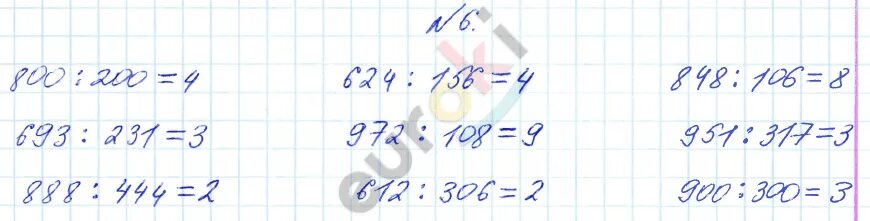 №6.
800 : 200 = 4 624 : 156 = 4 848 : 106 = 8
693 : 231 = 3 972 : 108 = 9 951 : 317 = 3
888 : 444 = 2 612 : 306 = 2 900 : 300 = 3
euroki